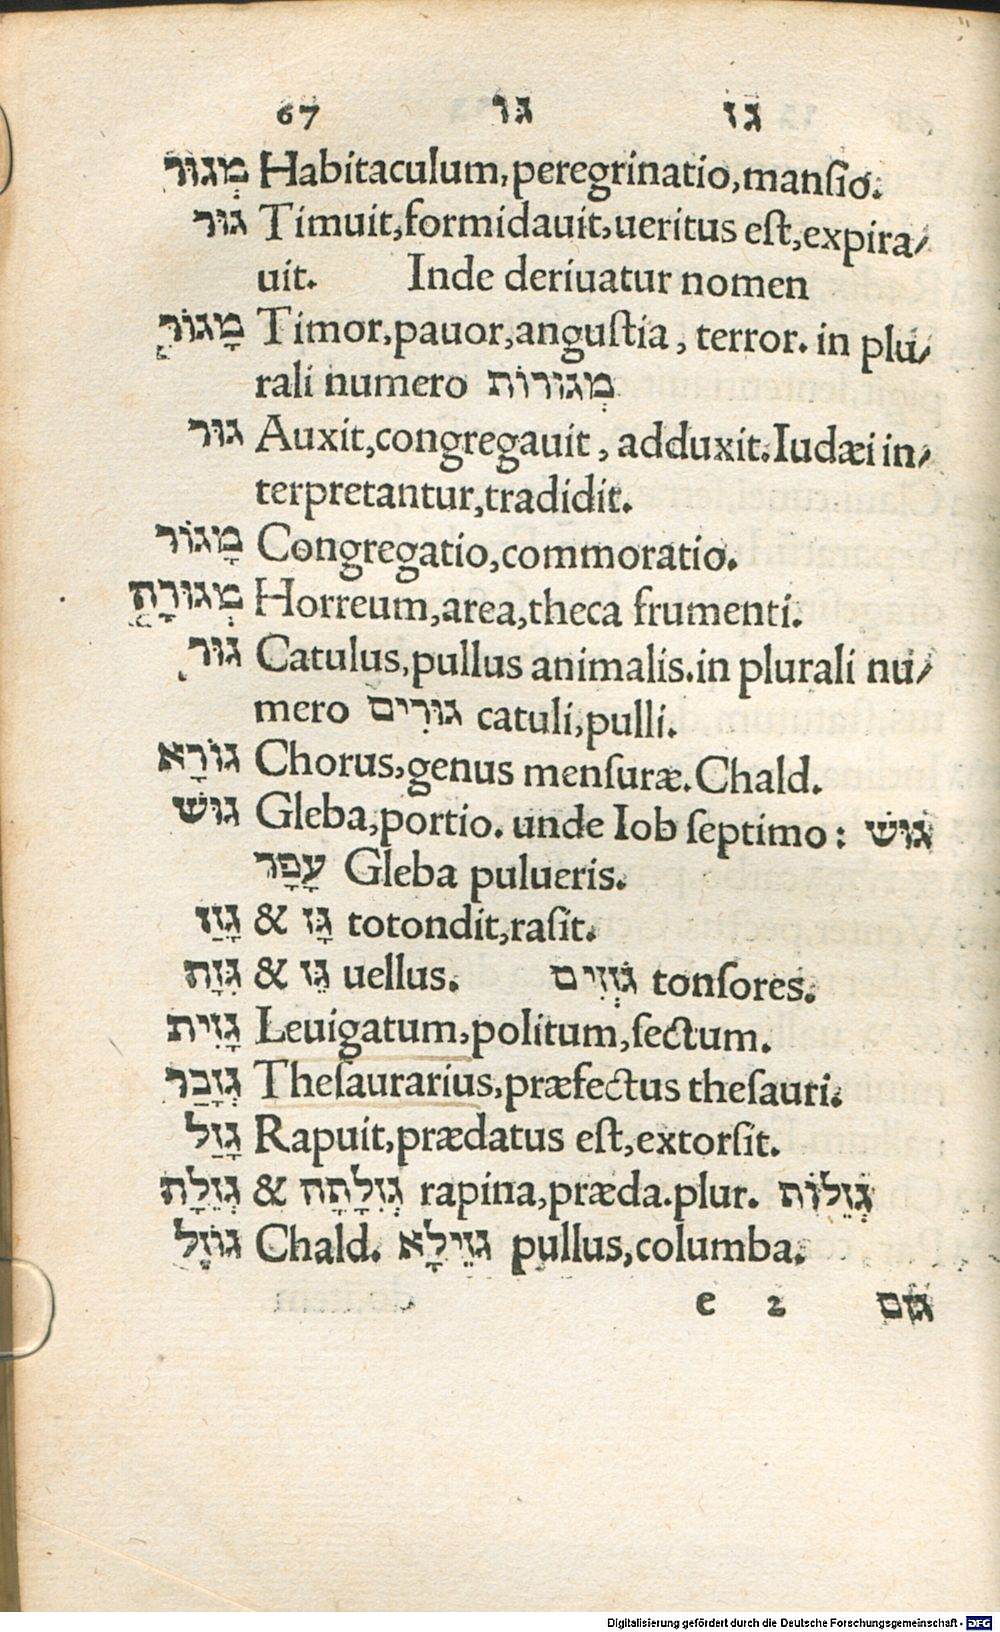 67 גו גז
מְגוּר Habitaculum, peregrinatio, manſio.
גוּר Timuit, formidauit, ueritus eſt, expira⸗
uit. Inde deriuatur nomen
מָגוֹר Timor, pauor, anguſtia, terror. in plu⸗
rali numero מְגוּרוֹת
גוּר Auxit, congregauit, adduxit. Iudæi in⸗
terpretantur, tradidit.
מָגוֹר Congregatio, commoratio.
מְגוּרָה Horreum, area, theca frumenti.
גוּר Catulus, pullus animalis. in plurali nu⸗
mero גוּרִים catuli, pulli.
גוֹרָא Chorus, genus menſuræ. Chald.
גוּשׁ Gleba, portio. unde Iob ſeptimo: גוּשׁ
עָפָר Gleba pulueris.
גָּזַז & גָּז totondit, raſit.
גִּזָּה & גֵּז uellus. גֹּזְזִים tonſores.
גָּזִית Leuigatum, politum, ſectum.
גִּזְבָּר Theſaurarius, præfectus theſauri.
גָּזַל Rapuit, prædatus eſt, extorſit.
גְּזֵלָה & גְּזִלָתָה rapina, præda. plur. גְּזֵלוֹת
גוֹזָל Chald. גּוֹזֵילָא pullus, columba.
e 2 גזם
Digitalisierung gefördert durch die Deutsche Forschungsgemeinschaft - DFG